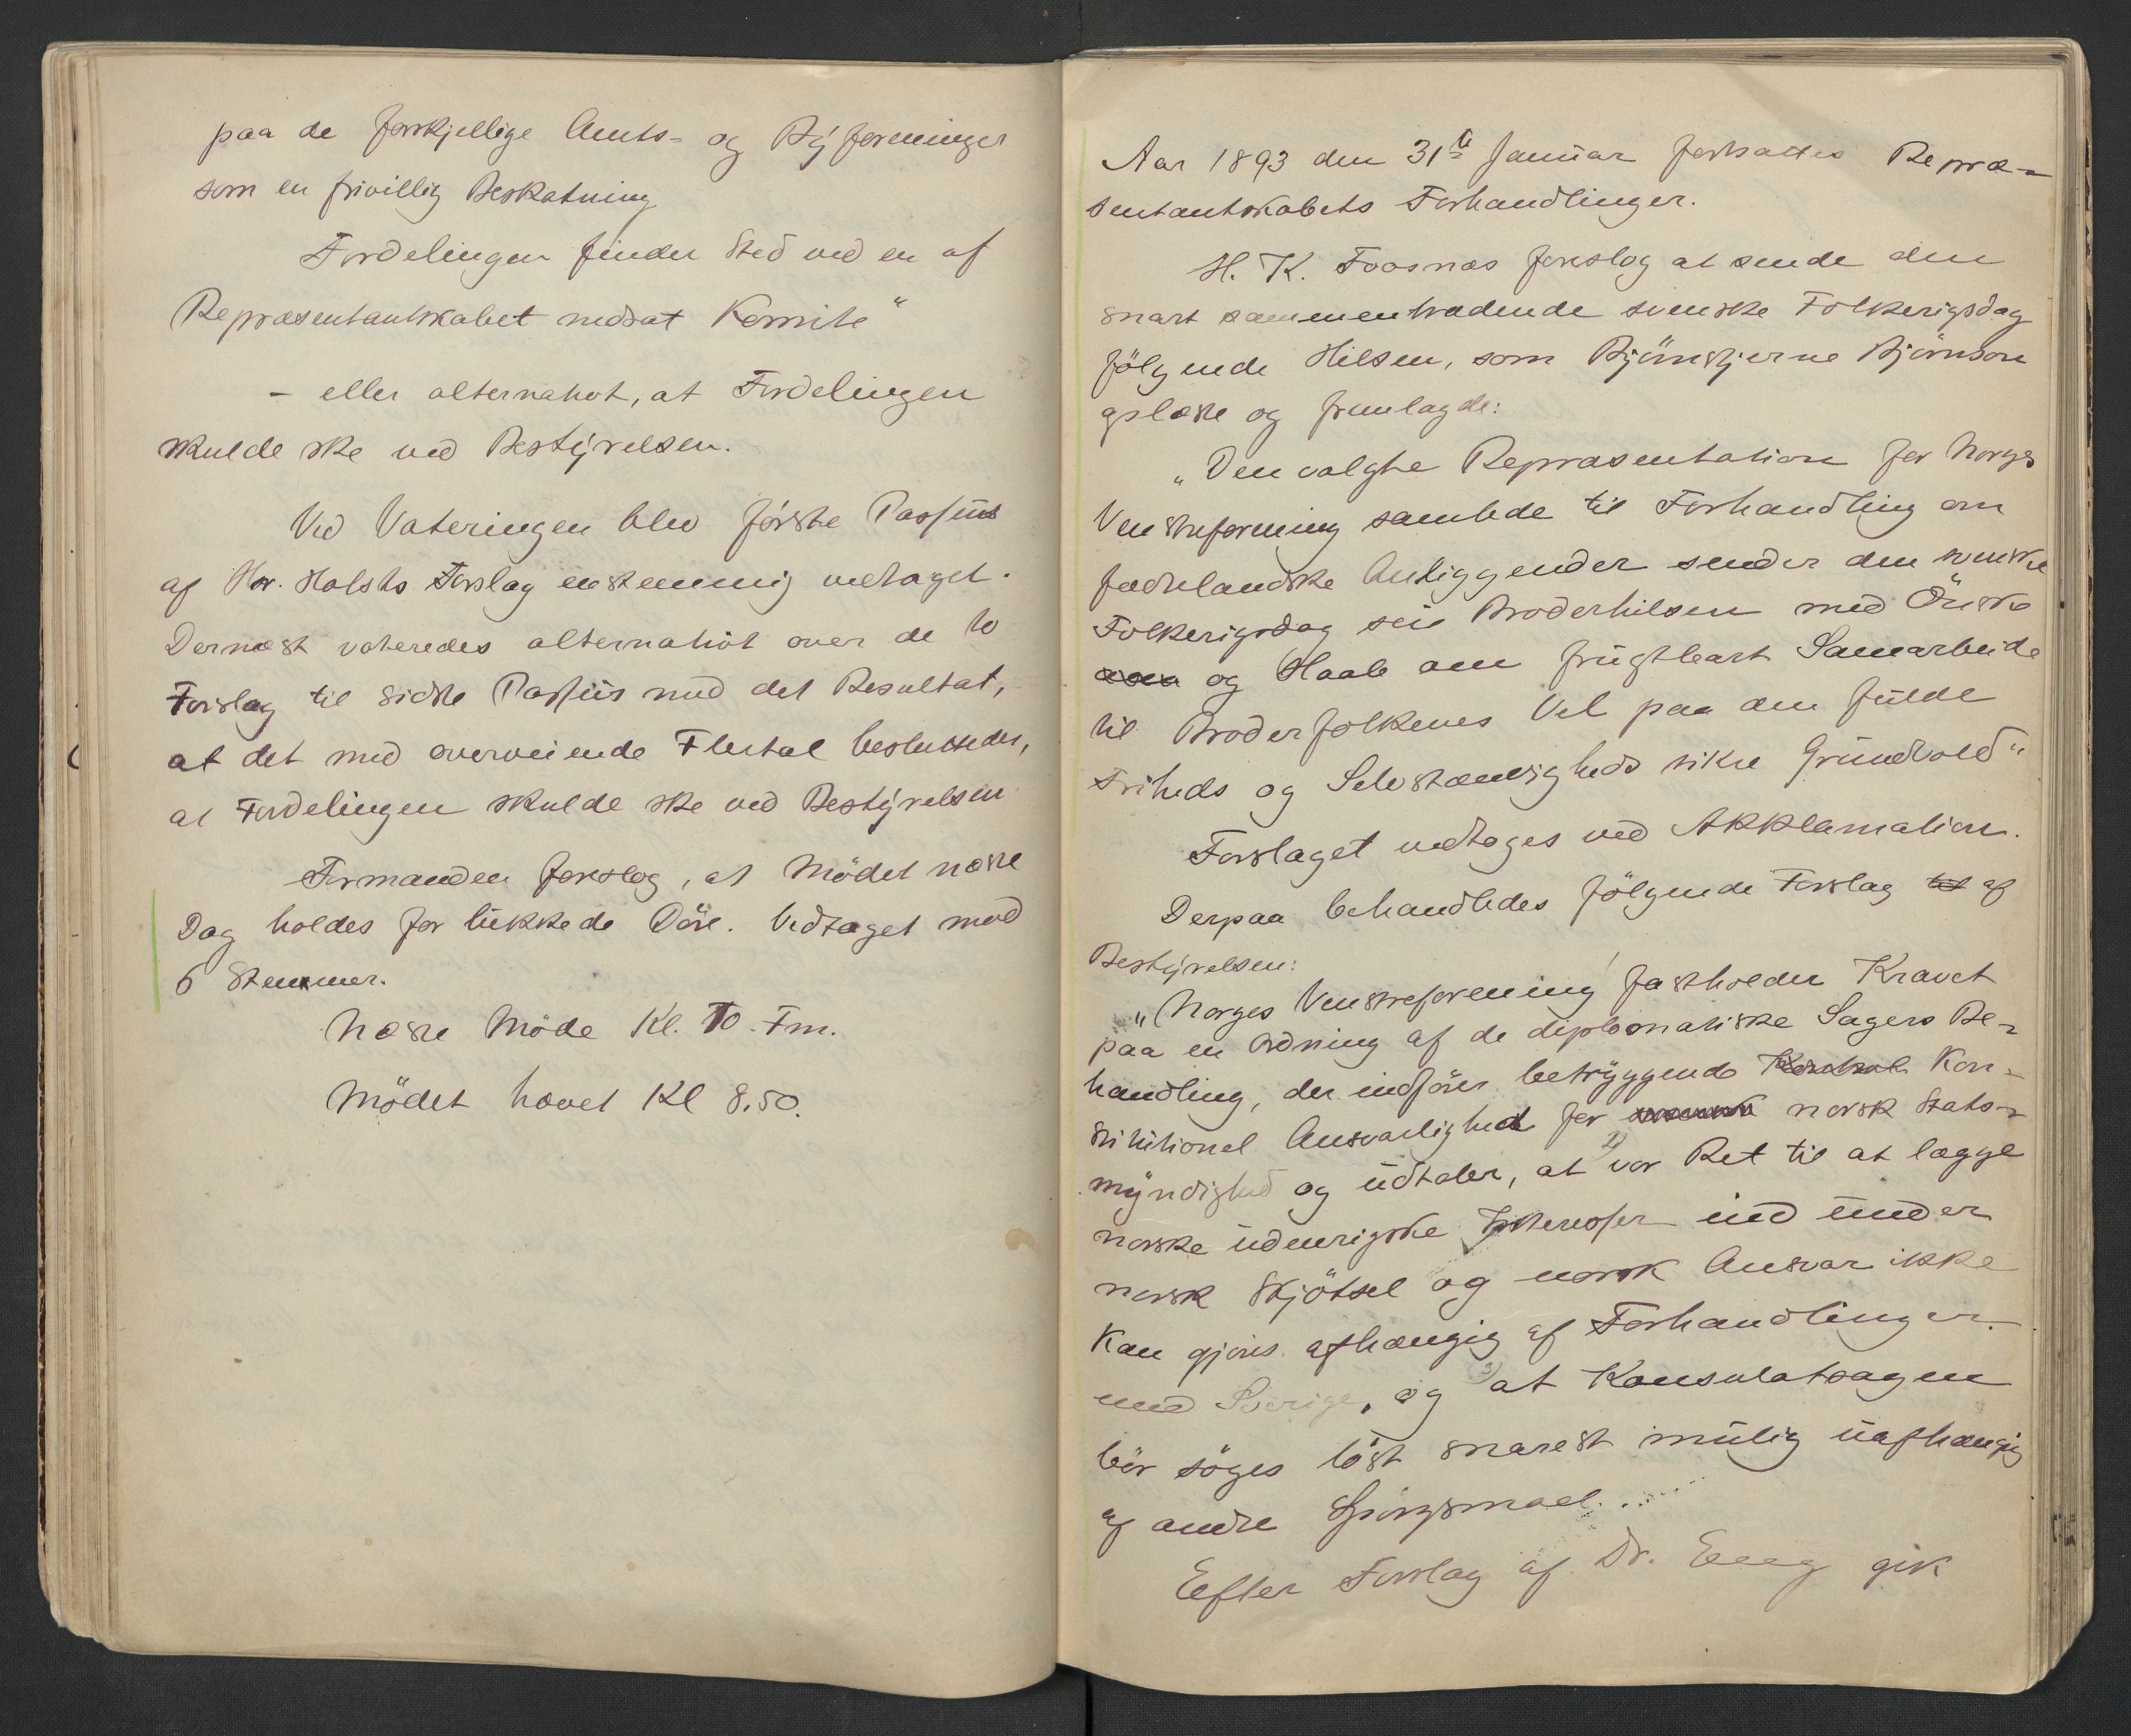 paa de forskjellige Amts- og Byforeninger
som en frivillig Beskatning
Fordelingen finder Sted ved en af
Repræsentantskabet nedsat Komite"
- eller alternativt, at Fordelingen
skulde ske ved Bestyrelsen.
Ved Voteringen blev første Passus
af Hr. Holsts Forslag enstemmig vedtaget.
Dernæst voteredes alternativt over de to
Forslag til sidste Passus med det Resultat,
at det med overveiende Flertal besluttedes,
at Fordelingen skulde ske ved Bestyrelsen
Formanden foreslog, at Mödet næste
Dag holdes for lukkede Döre. Vedtaget mod
6 Stemmer.
Næste Möde Kl. 10 Fm.
Mödet hævet Kl 8,50.
Aar 1893 den 31te Januar fortsattes Repræ-
sentantskabets Forhandlinger.
H. K. Foosnæs foreslog at sende den
snart sammentrædende svenske Folkerigsdag
fölgende Hilsen, som Björnstjerne Björnson
oplæste og fremlagde:
"Den valgte Repræsentation for Norges
Venstreforening samlede til Forhandling om
fædrelandske Anliggender sender den svenske
Folkerigsdag sin Broderhilsen med Önske
og Haab om frugtbart Samarbeide
til Broderfolkenes Vel paa den fulde
Friheds og Selvstændigheds sikre Grundvold"
Forslaget vedtoges ved Akklamation.
Derpaa behandledes fölgende Forslag til af
Bestyrelsen:
"Norges Venstreforening fastholder Kravet
paa en Ordning af de diplomatiske Sagers Be-
handling, der indförer betryggende Kontrol Kon-
stitutionel Ansvarlighed for norsk Stats-
myndighed og udtaler, at 1) vor Ret til at lægge
norske udenrigske Interesser ind under
norsk Skjötsel og norsk Ansvar ikke
kan gjøres afhængig af Forhandlinger
med Sverige, og 2) at Konsulatsagen
bör söges löst snarest mulig uafhængig
af andre Spörgsmaal.
Efter Forslag af Dr. Eng gik